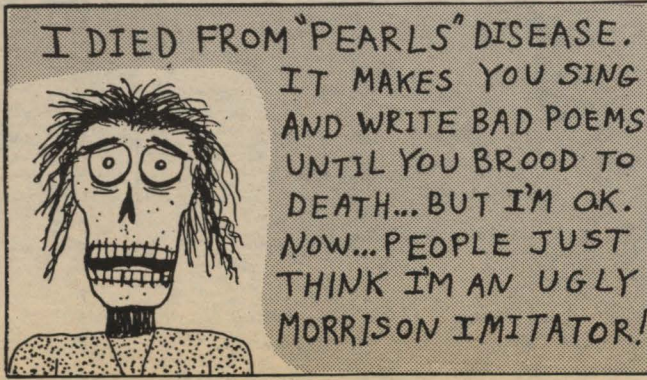 I DIED FROM "PEARLS" DISEASE.
IT MAKES YOU SING
AND WRITE BAD POEMS
UNTIL YOU BROOD TO
DEATH... BUT I'M OK.
NOW... PEOPLE JUST
THINK I'M AN UGLY
MORRISON IMITATOR!